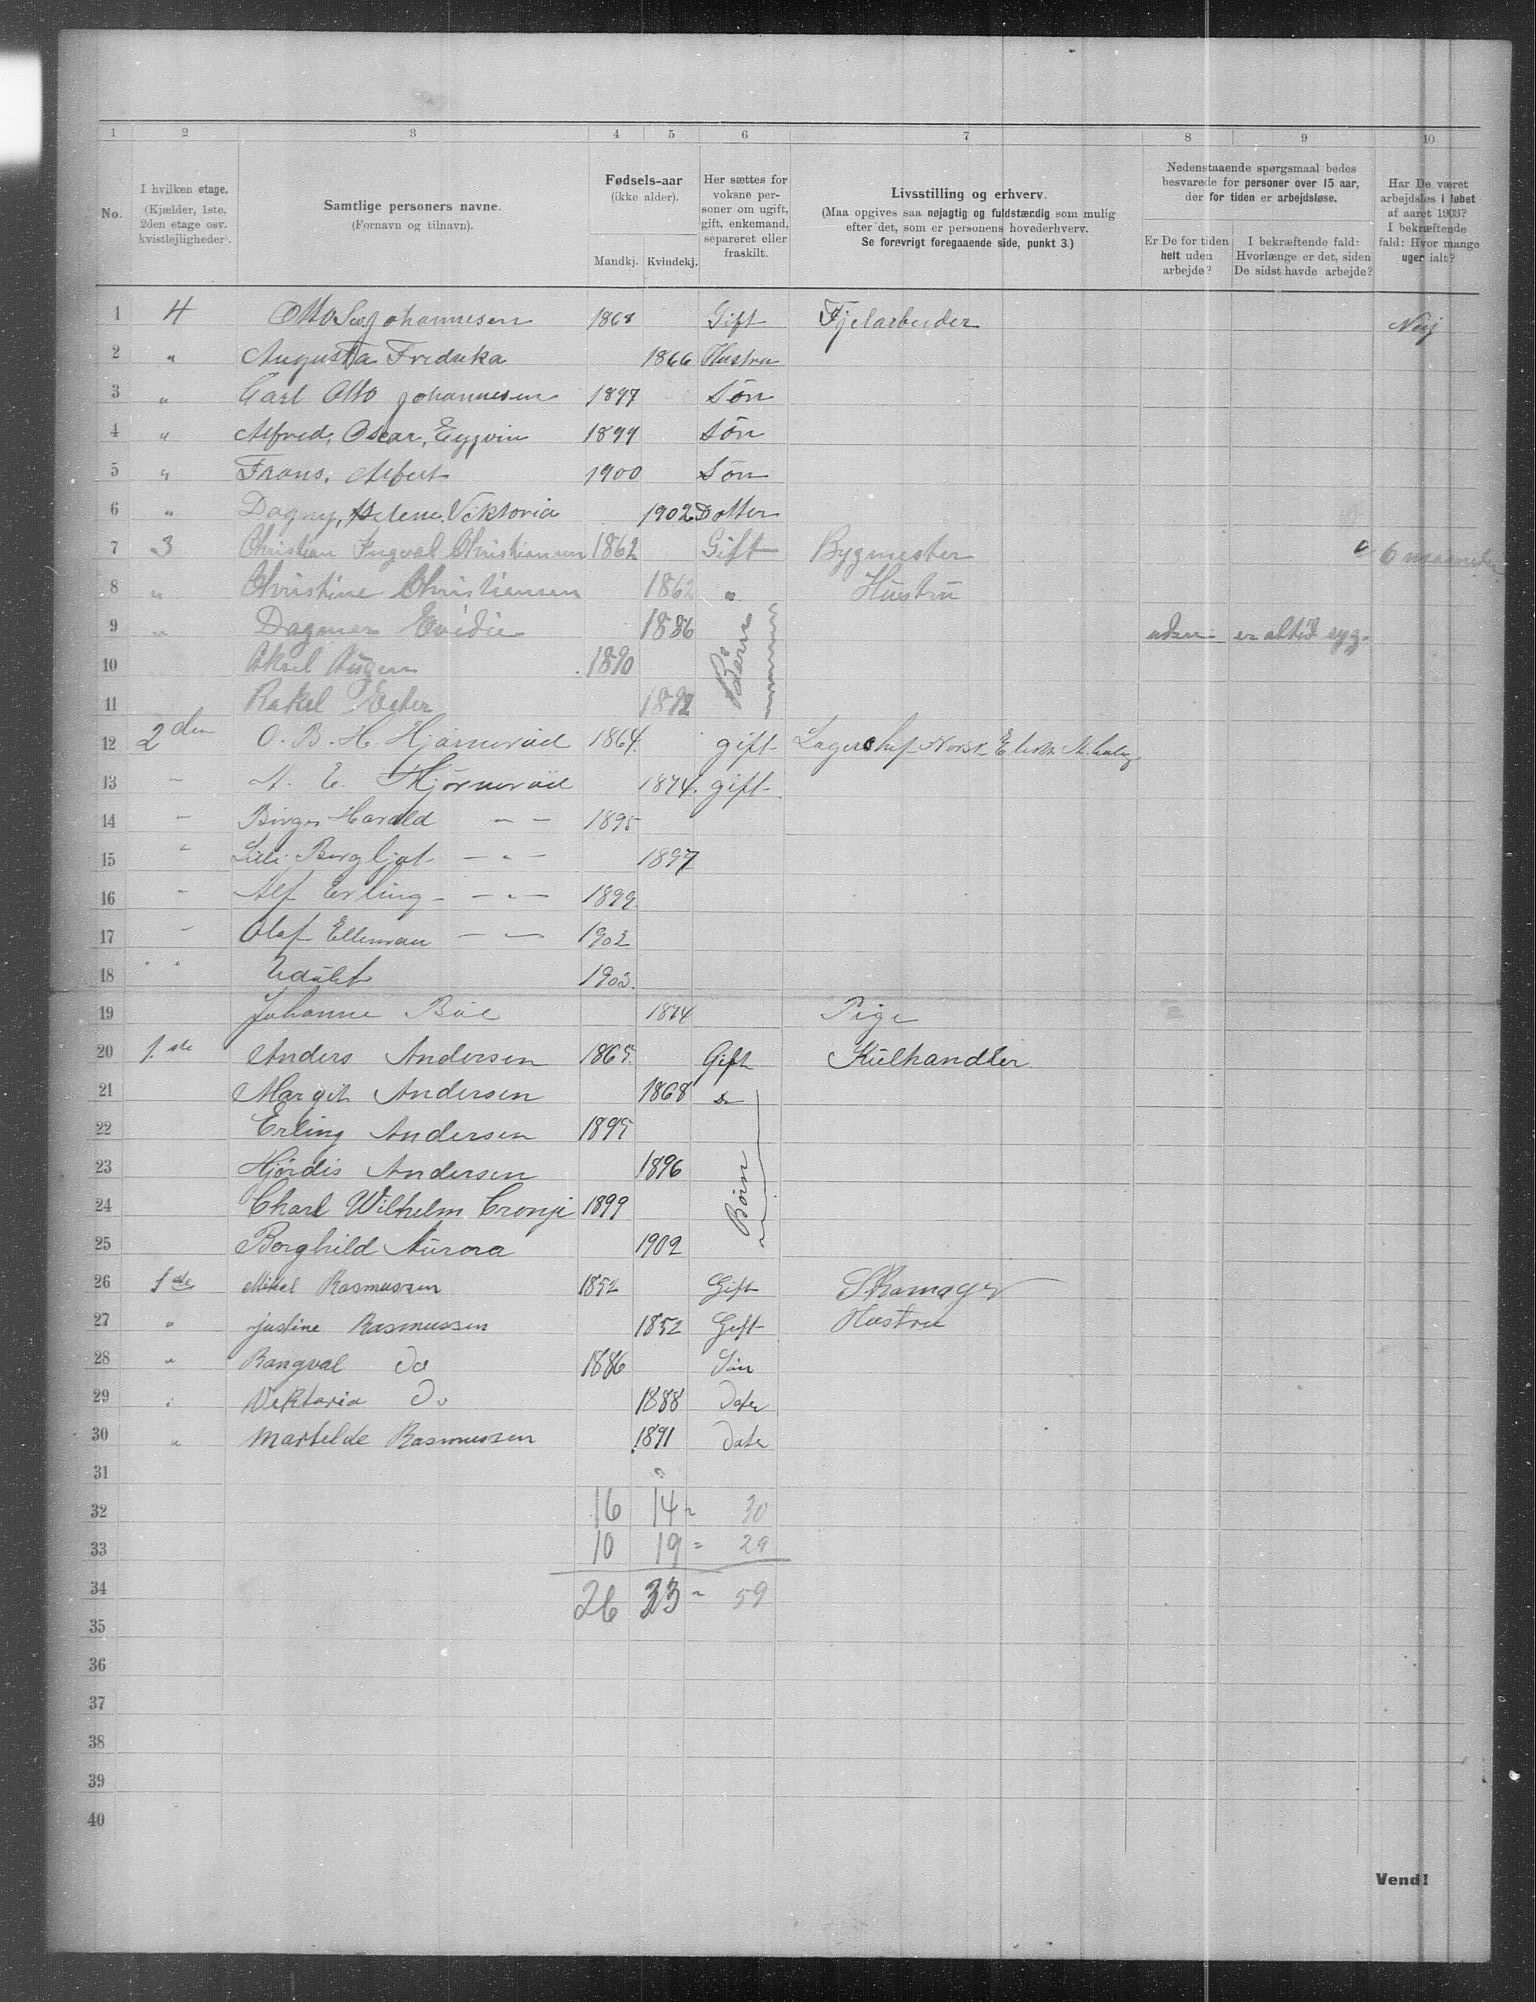 1 2 3 4 5 6 7 8 9 10
No.
I hvilken etage.
(Kjælder, 1ste,
2den etage osv.
kvistlejligheder).
Samtlige personers navne.
(Fornavn og tilnavn).
Fødsels-aar
(ikke alder).
Mandkj. Kvindekj.
Her sættes for
voksne per-
soner om ugift,
gift, enkemand,
separeret eller
fraskilt.
Livsstilling og erhverv.
(Maa opgives saa nøjagtig og fuldstærdig som mulig
efter det, som er personens hovederhverv.
Se forøvrigt foregaaende side, punkt 3.)
Nedenstaaende spørgsmaal bedes
besvarede for personer over 15 aar,
der for tiden er arbejdsløse.
Er De for tiden
helt uden
arbejde?
I bekræftende fald:
Hvorlænge er det, siden
De sidst havde arbejde?
Har De været
arbejdsløs i løbet
af aaret 1903?
I bekræftende
fald: Hvor mange
uger ialt?
1 4 Otto Johannesen 1868 Gift Fjelarbeider Neij
2 " Augusta Fredrika 1866 Hustru
3 " Carl Otto Johannesen 1897 Søn
4 " Alfred, Oscar, Eyqvin 1899 Søn
5 " Frans, Albert 1900 Søn
6 " Dagny, Helene Viktoria 1902 Dotter
7 3 Christian Ingval Christiansen 1862 Gift Bygmester 6 maaneder
8 " Christine Christiansen 1862 " Hustru
9 " Dagmar Evidie 1886 Børn uden er altid syg.
10 Aksel Augen 1890
11 Rakel Ester 1892
12 2den O. B. H. Hjørnerød 1864. gift Lagerchef Norsk Elektr.
13 " A. E. Hjørnerød 1874. gift
14 " Birger Harald — " — 1895
15 " Lilli Bergljot — " — 1897
16 " Alf Erling — " — 1899.
17 " Olaf Elleman — " — 1902
18 " Udøbt 1903.
19 Johanne Bøe 1874 Pige
20 1.ste Anders Andersen 1865. Gift Kulhandler
21 Margit Andersen 1868 Do
22 Erling Andersen 1895 Børn
23 Hjørdis Andersen 1896
24 Charl Wilhelm Cronje 1899
25 Borghild Aurora 1902
26 1ste Mikel Rasmussen 1852 Gift Skomager
27 " Justine Rasmussen 1852 Gift Hustru
28 " Rangval Do 1886 Søn
29 " Viktoria Do 1888 Dater
30 " Martelde Rasmussen 1891 Date
31
32 16 14 = 30
33 10 19 = 29
34 26 33 = 59
35
36
37
38
39
40
Vend!